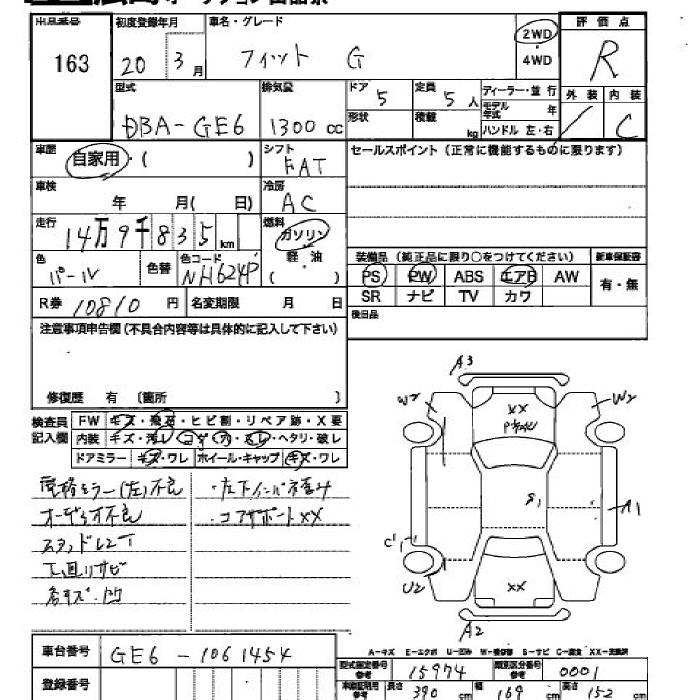 出品番号 初度登録年月 車名・グレード 2WD 評価点
163 20 3月 フィット G 4WD R
型式 排気量 ドア 定員 ディーラー・並行 外装 内装
DBA-GE6 1300cc 5 5人 モデル年式 年 / C
形状 積載 kg ハンドル 左・右
車歴 自家用・( ) シフト FAT セールスポイント(正常に機能するものに限ります)
車検 年 月( 日) 冷房 AC
走行 14万9千835km 燃料 ガソリン
軽油
色 パール 色替 色コード NH624P ( ) 装備品(純正品に限り○をつけてください) 新車保証書
PS PW ABS エアB AW 有・無
R券 10810円 名変期限 月 日 SR ナビ TV カワ
注意事項申告欄(不具合内容等は具体的に記入して下さい) 後日品
修復歴 有 〔箇所 〕
検査員記入欄 FW キズ・飛石・ヒビ割・リペア跡・X要
内装 キズ・汚レ・コゲ・穴・スレ・ヘタリ・破レ
ドアミラー キズ・ワレ ホイール・キャップ キズ・ワレ
電格ミラー(左)不良 ・左下インパネ重み
オーディオ不良 ・コアサポートXX
スタッドレス
下廻りサビ
各キズ・凹
A3
W2 XX W2
S1 A1
C1
U2 XX
A2
A-キズ E-エクボ U-凹み W-補修跡 S-サビ C-腐食 XX-交換済
車台番号 GE6-1061454 型式指定番号 参考 15974 類別区分番号 参考 0001
登録番号 長さ 390cm 幅 169cm 高さ 152cm